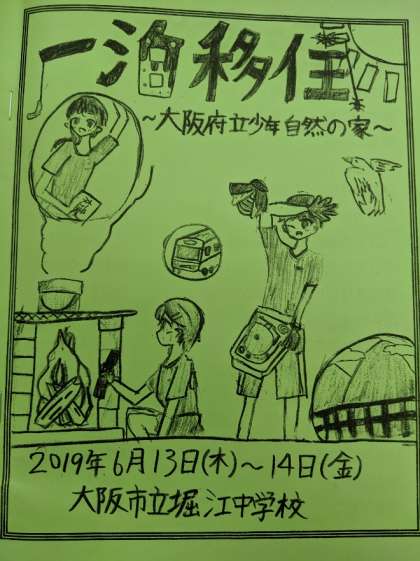 一泊移住
～大阪府立少年自然の家～
2019年6月13日(木)～14日(金)
大阪市立堀江中学校